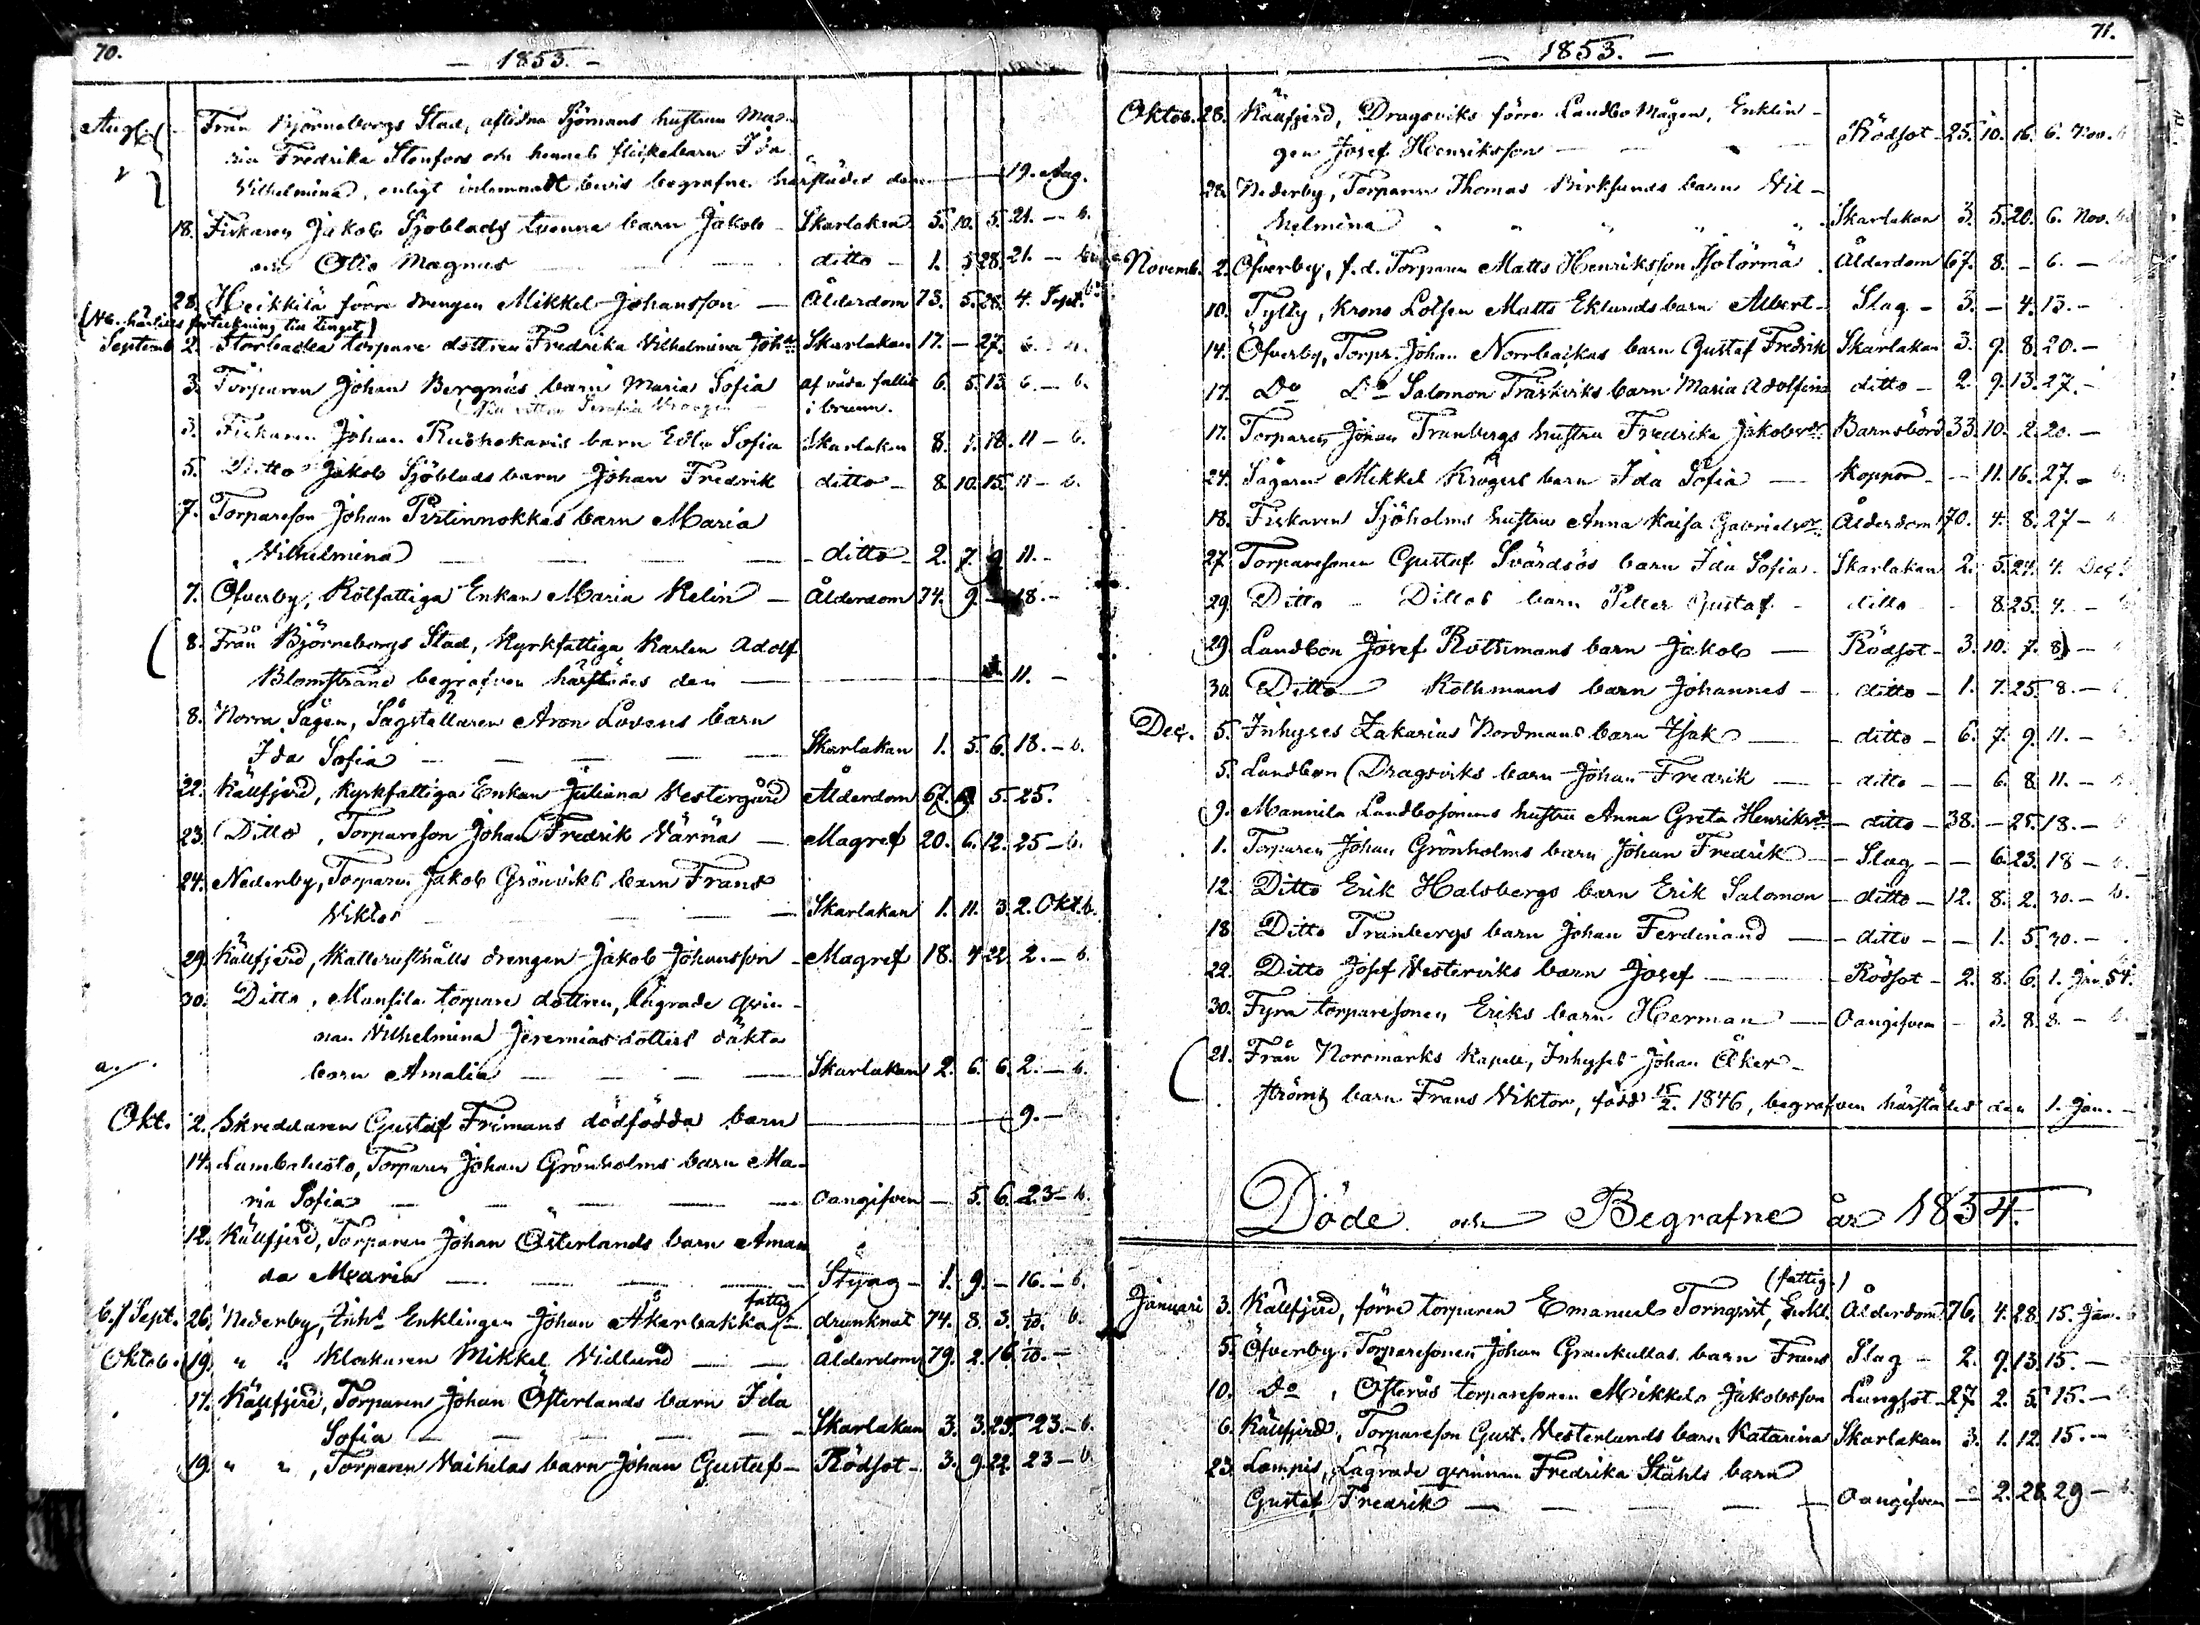 70.
— 1853. —
Aug. Från Björneborgs Stad, aflidna Sjömans hustrun Ma-
ria Fredrika Stenfors och hennes flickebarn Ida
Vilhelmina, enligt inlemnadt bevis begrafne härstädes den — 19. Aug.
18. Fiskaren Jakob Sjöblads tvenne barn Jakob — Skarlakan 5. 10. 5. 21. — b.
och Otto Magnus — ditto — 1. 5 28. 21. —
28. Heikkilä förre drengen Mikkel Johansson — Ålderdom 73. 5. 28. 4. Sept.
förteckning till Tinget)
Septemb. 2. Storbacka torpare dottren Fredrika Vilhelmina Johsdr Skarlakan 17. — 27. 6.
3. Torparen Johan Bergnäs barn Maria Sofia af våda fallit 6. 5. 13. 6. — b.
i brunn.
3. Fiskaren Johan Ruohokaris barn Edla Sofia Skarlakan 8. 1. 18. 11 — b.
5. Ditto Jakob Sjöblads barn Johan Fredrik ditto — 8. 10. 15. 11 — b.
7. Torpareson Johan Pirtinnokkas barn Maria
Vilhelmina — ditto — 2. 7. 9 11. —
7. Öfverby, Rotfattiga Enkan Maria Relin — Ålderdom 74. 9. — 18. —
8. Från Björneborgs Stad, Kyrkfattiga Karlen Adolf
Blomstrand begrafven härstädes den — 11. —
8. Norra Sågen, Sågställaren Aron Lovens barn
Ida Sofia — Skarlakan 1. 5. 6. 18. — b.
22. Källfjerd, Kyrkfattiga Enkan Juliana Vestergård Ålderdom 67. 5. 25.
23. Ditto, Torpareson Johan Fredrik Värnä — Magref 20. 6. 12. 25 — b.
24. Nederby, Torparen Jakob Grönviks barn Frans
Viktor — Skarlakan 1. 11. 3. 2. Okt. b.
29. Källfjerd, drengen Jakob Johansson — Magref 18. 4 22. 2. — b.
30. Ditto, Monsila torpare dottren, lägrade qvin-
nan Vilhelmina Jeremiasdotters oäkta
barn Amalia — Skarlakan 2. 6. 6. 2. — b.
Okt. 2. Skreddaren Gustaf Frimans dödfödda barn — 9. —
14. Lambaluoto, Torparen Johan Grönholms barn Ma-
ria Sofia — Oangifven — 5. 6. 23 — b.
12. Källfjerd, Torparen Johan Österlands barn Aman
da Maria — 1. 9. — 16. — b.
fattig
b./ Sept. 26. Nederby, Inhs Enklingen Johan Åkerbakka — drunknat 74. 8. 3. b.
Oktob. 19. " " Klockaren Mikkel Vidlund — Ålderdom 79. 2. 16.
17. Källfjerd, Torparen Johan Österlands barn Ida
Sofia — Skarlakan 3. 3. 25. 23. — b.
19. " ", Torparen Vaihelas barn Johan Gustaf — Rödsot — 3. 9. 22. 23 — b.
71.
— 1853. —
Oktob. 28. Källfjerd, Dragsviks förre Landbo Mågen, Enklin-
gen Josef Henriksson — Rödsot — 25. 10. 16. 6. Nov.
28. Nederby, Torparen Thomas Birklunds barn Vil-
helmina — Skarlakan 3. 5. 20. 6. Nov.
Novemb. 2. Öfverby, f.d. Torparen Matts Henriksson Ålderdom 67. 8. — 6. —
10. Tytty, Krono Lotsen Matts Eklunds barn Albert — Slag — 3. — 4. 13. —
14. Öfverby, Torpr. Johan Norrbackas barn Gustaf Fredrik Skarlakan 3. 9. 8. 20. —
17. Do Do Salomon Träskviks barn Maria Adolfina ditto — 2. 9. 13. 27. —
17. Torparen Johan Tranbergs hustru Fredrika Jakobsdr. Barnsbörd 33. 10. 2. 20. —
24. Sågaren Mikkel Krögers barn Ida Sofia — Koppor — — 11. 16. 27. —
18. Fiskaren Sjöholms hustru Anna Kaisa Gabrielsdr. Ålderdom 70. 4. 8. 27 —
27. Torparesonen Gustaf Svärdsös barn Ida Sofia. Skarlakan 2. 5. 24. 4. Dec.
29. Ditto — Dittos barn Petter Gustaf — ditto — 8. 25. 4. —
29. Landbon Josef Rothmans barn Jakob — Rödsot — 3. 10. 7. 8. —
30. Ditto Rothmans barn Johannes — ditto — 1. 7. 25. 8. —
Dec. 5. Inhyses Zakarias Nordmans barn Isak — ditto — 6. 7. 9. 11. —
5. Landbon Dragsviks barn Johan Fredrik — ditto — — 6. 8. 11. —
9. Mannila Landbosonens hustru Anna Greta Henriksdr — ditto — 38. — 25. 18. —
1. Torparen Johan Grönholms barn Johan Fredrik — Slag — — 6. 23. 18 —
12. Ditto Erik Halsbergs barn Erik Salomon — ditto — 12. 8. 2. 30. —
18. Ditto Tranbergs barn Johan Ferdinand — ditto — — 1. 5. 30. —
22. Ditto Josef Vesterviks barn Josef — Rödsot — 2. 8. 6. 1. Jan. 54.
30. Fyra torparesonen Eriks barn Herman — Oangifven — 3. 8. 8. —
21. Från Norrmarks Kapell, Inhyses Johan Åker-
ströms barn Frans Viktor, född 15/2. 1846, begrafven härstädes den 1. Jan. —
Döde och Begrafne år 1854.
(fattig.)
Januari 3. Källfjerd, förre torparen Emanuel Tornqvist, Enkl. Ålderdom 76. 4. 28. 15. Jan.
5. Öfverby, Torparesonen Johan Grankullas barn Frans Slag — 2. 9. 13. 15. —
10. Do, Österås torparesonen Mikkel Jakobsson Lungsot — 27. 2. 5. 15. —
6. Källfjerd, Torpareson Gust. Vesterlunds barn Katarina Skarlakan 3. 1. 12. 15. —
23. Lampis, Lägrade qvinnan Fredrika Ståhls barn
Gustaf Fredrik — Oangifven — 2. 28. 29 —